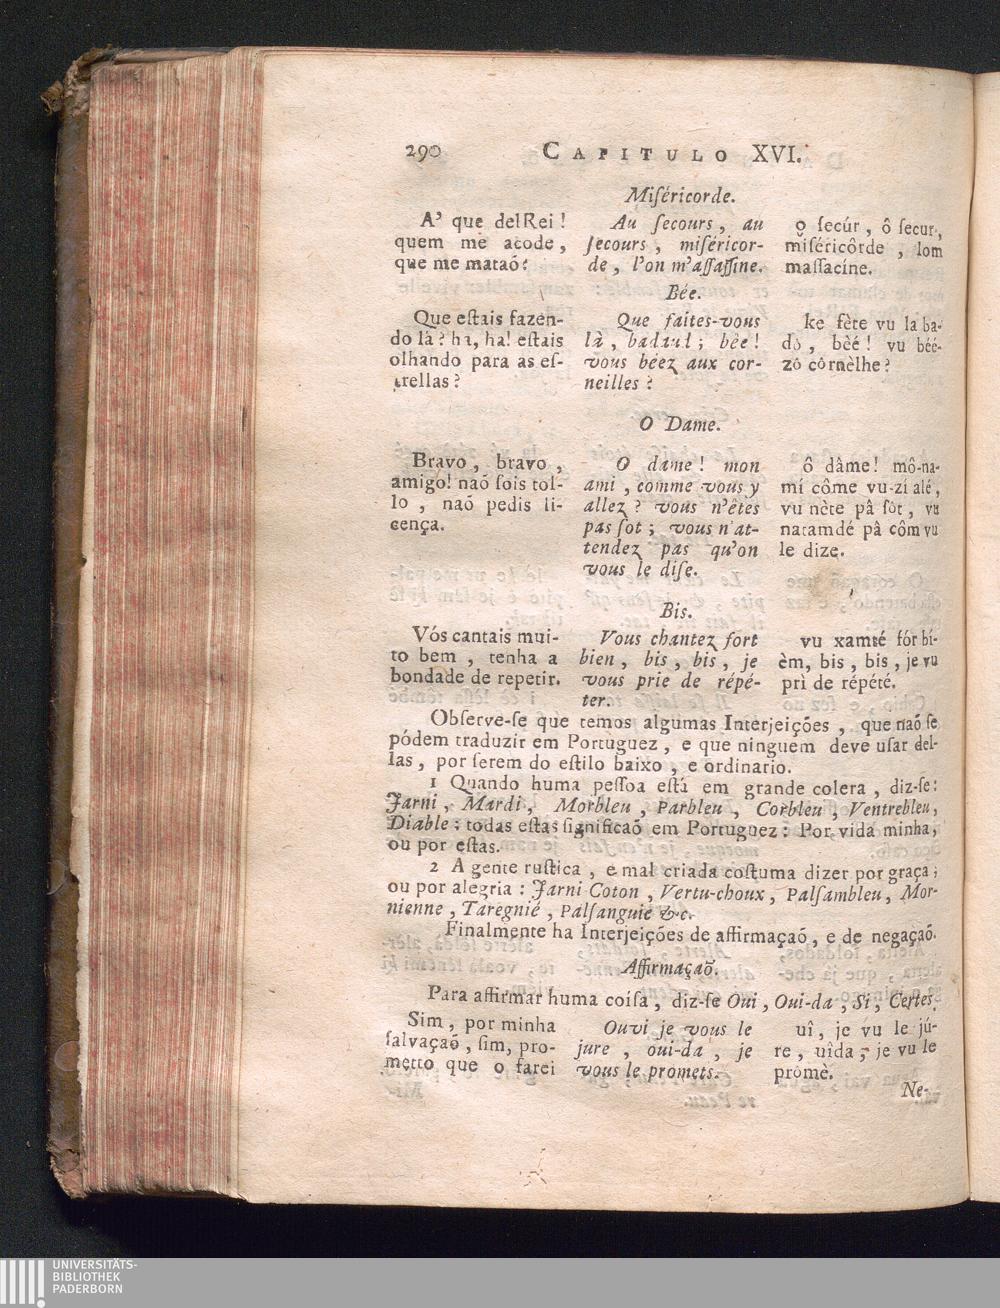 290 CAPITULO XVI.
Miſéricorde.
A' que delRei !
quem me acode,
que me mataõ!
Au ſecours, au
ſecours, miſéricor-
de, l'on m'aſſaſſine.
o ſecúr, ô ſecur,
miſéricôrde, lom
maſſacíne.
Bée.
Que eſtais fazen-
do lá? ha, ha! eſtais
olhando para as eſ-
trellas?
Que faites-vous
là, badaul; bée!
vous béez aux cor-
neilles?
ke fète vu la ba-
dô, bèé! vu béé-
zô côrnèlhe?
O Dame.
Bravo, bravo,
amigo! naõ ſois tol-
lo, naõ pedis li-
cença.
O dame! mon
ami, comme vous y
allez? vous n'êtes
pas ſot; vous n'at-
tendez pas qu'on
vous le diſe.
ô dâme! mô-na-
mí côme vu-zí alé,
vu nète pâ ſòt, vu
natamdé pâ côm vu
le dize.
Bis.
Vós cantais mui-
to bem, tenha a
bondade de repetir.
Vous chantez fort
bien, bis, bis, je
vous prie de répé-
ter.
vu xamté fór bí-
èm, bis, bis, je vu
prì de répété.
Obſerve-ſe que temos algumas Interjeições, que naõ ſe
pódem traduzir em Portuguez, e que ninguem deve uſar del-
las, por ſerem do eſtilo baixo, e ordinario.
1 Quando huma peſſoa eſtá em grande colera, diz-ſe:
Jarni, Mardi, Morbleu, Parbleu, Corbleu, Ventrebleu,
Diable: todas eſtas ſignificaõ em Portuguez: Por vida minha,
ou por eſtas.
2 A gente ruſtica, e mal criada coſtuma dizer por graça;
ou por alegria: Jarni Coton, Vertu-choux, Palſambleu, Mor-
nienne, Taregnié, Palſanguie &c.
Finalmente ha Interjeições de affirmaçaõ, e de negaçaõ.
Affirmaçaõ.
Para affirmar huma coiſa, diz-ſe Oui, Oui-da, Si, Certes.
Sim, por minha
ſalvaçaõ, ſim, pro-
metto que o farei
Ouvi je vous le
jure, oui-da, je
vous le promets.
uî, je vu le jú-
re, uîda, je vu le
promè.
Ne-
UNIVERSITÄTS-
BIBLIOTHEK
PADERBORN